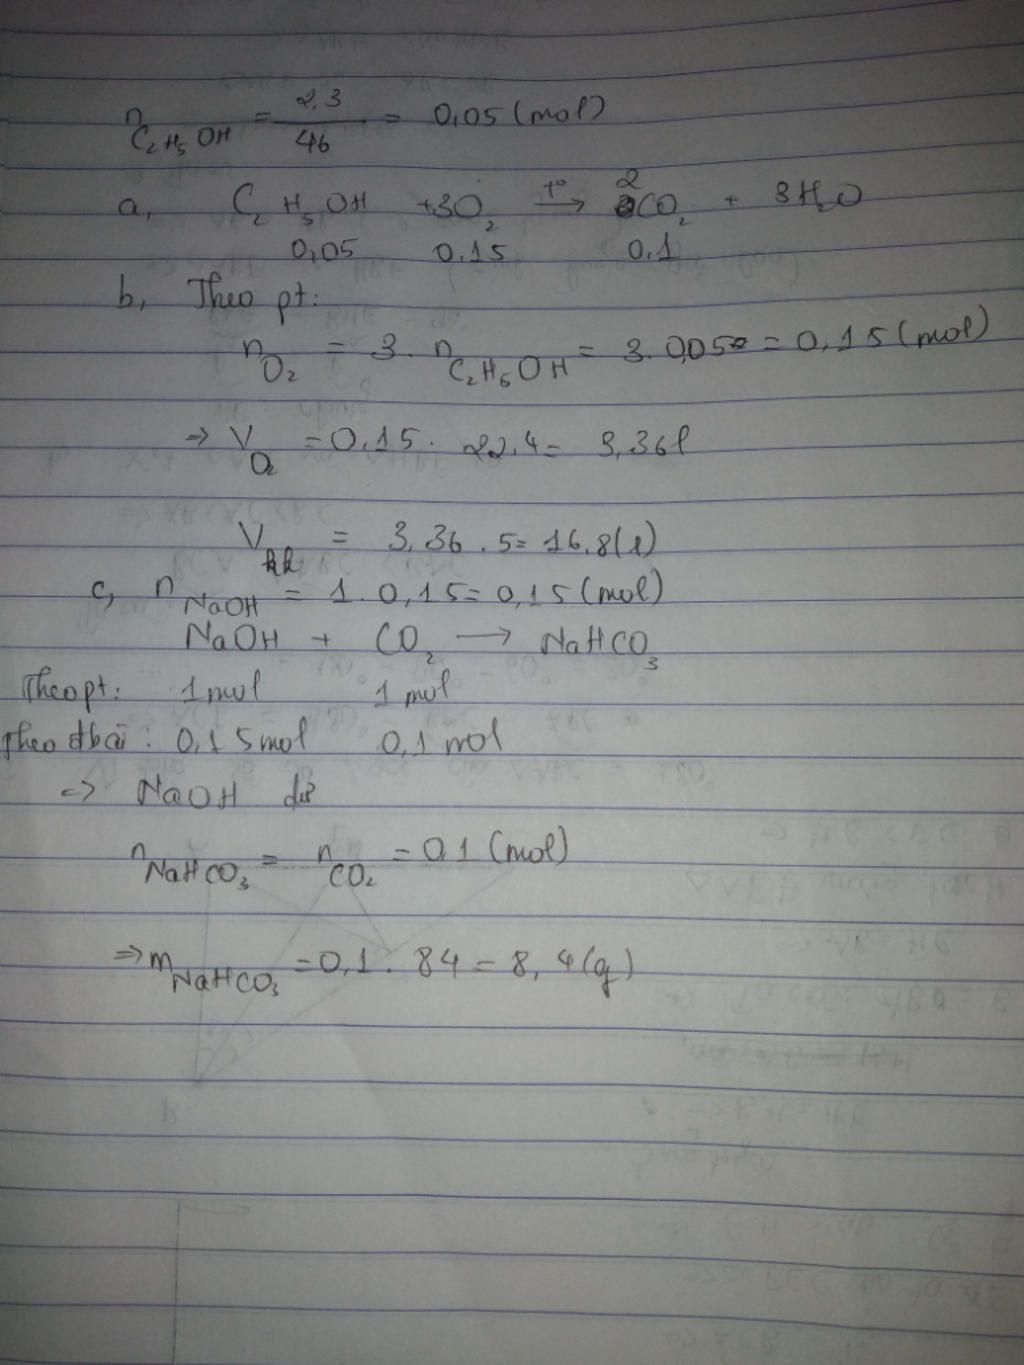 n C₂H₅OH = 2,3/46 = 0,05 (mol)
a, C₂H₅OH + 3O₂ →(t°) 2CO₂ + 3H₂O
0,05 0,15 0,1
b, Theo pt:
n O₂ = 3. n C₂H₅OH = 3. 0,05 = 0,15 (mol)
⇒ V O₂ = 0,15. 22,4 = 3,36 l
V kk = 3,36 . 5 = 16,8 (l)
c, n NaOH = 1. 0,15 = 0,15 (mol)
NaOH + CO₂ → NaHCO₃
Theo pt: 1 mol 1 mol
Theo đbài: 0,15 mol 0,1 mol
=> NaOH dư
n NaHCO₃ = n CO₂ = 0,1 (mol)
⇒ m NaHCO₃ = 0,1. 84 = 8,4 (g)